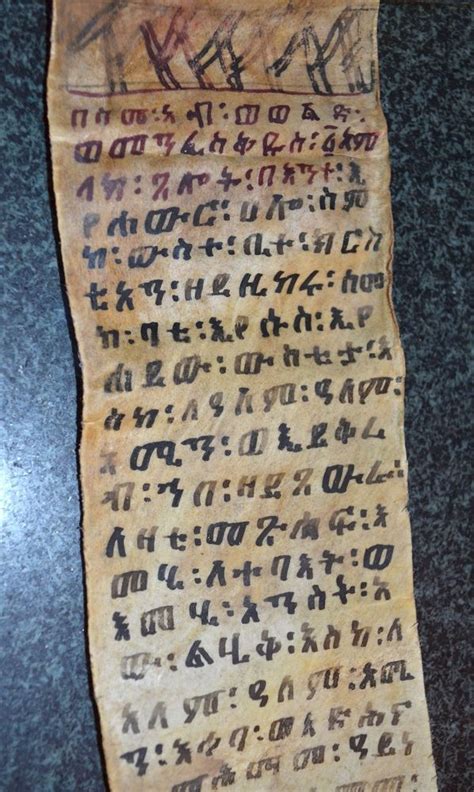 በስመ፡አብ፡ወወልድ፡
ወመንፈስቅዱስ፡፩አም
ላክ፡ጸሎት፡በእንተ፡ኢ
የሐውር፡ሀሎ፡ስም
ከ፡ውስተ፡ቤተ፡ክርስ
ቲአን፡ዘይዚክሩ፡ስመ
ከ፡ባቲ፡ኢየሱስ፡ኢየ
ሐይው፡ውስቲታ፡እ
ስከ፡ለዓለም፡ዓለም፡
አሚን፡ወኢይቅረ
ብ፡ኀበ፡ዘይጸውራ፡
ለዛቲ፡መጽሐፍ፡እ
መሂ፡ለተባእት፡ወ
እመሂ፡አንስት፡አ
ው፡ልሂቅ፡እስከ፡ለ
አለም፡ዓለም፡አሚ
ን፡